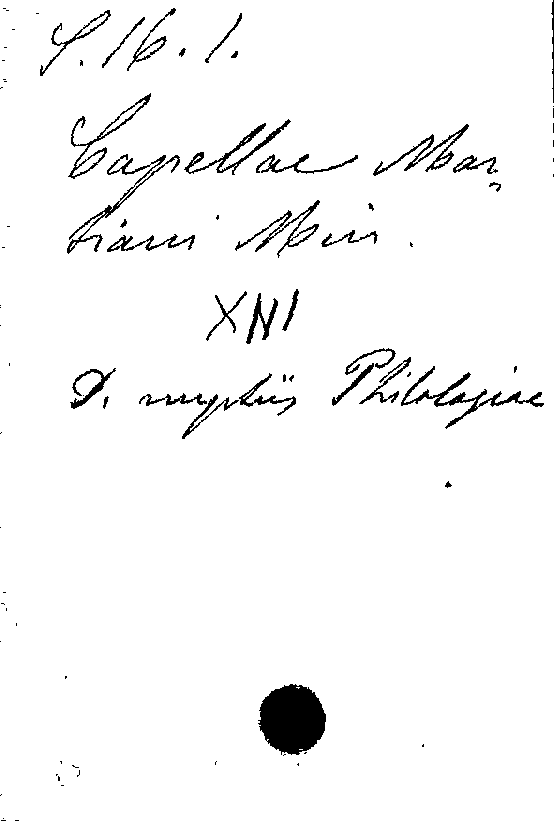 S.16.1.
Capellae Mar-
tiani Min.
XIII
D. nuptiis Philologiae